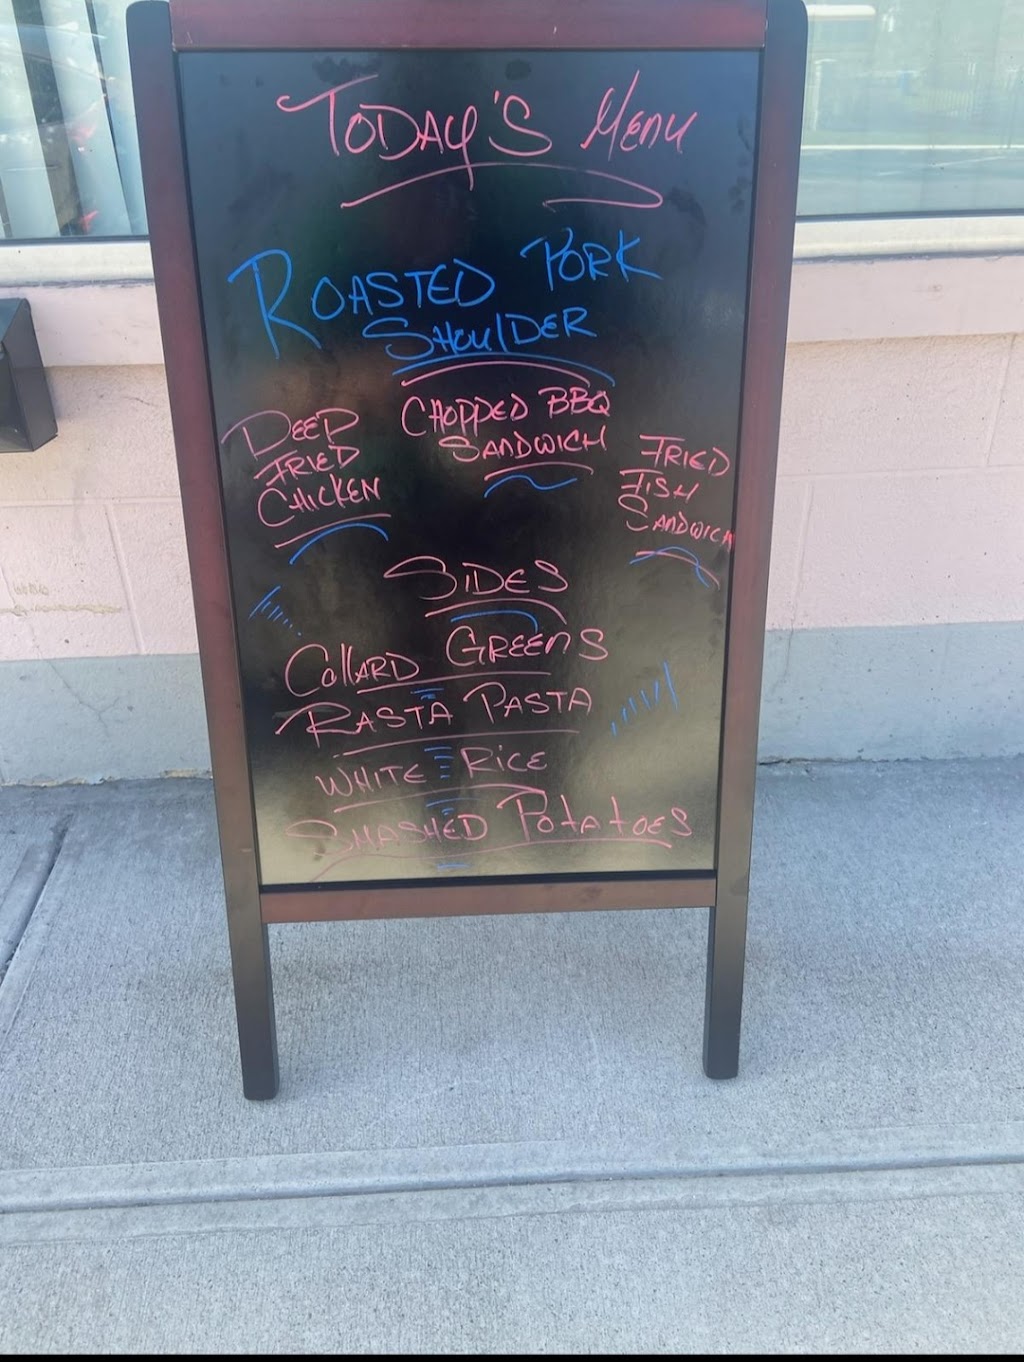 TODAY'S MENU
ROASTED PORK
SHOULDER
CHOPPED BBQ
SANDWICH
DEEP
FRIED
CHICKEN
FRIED
FISH
SANDWICH
SIDES
COLLARD GREENS
RASTA PASTA
WHITE RICE
SMASHED POTATOES